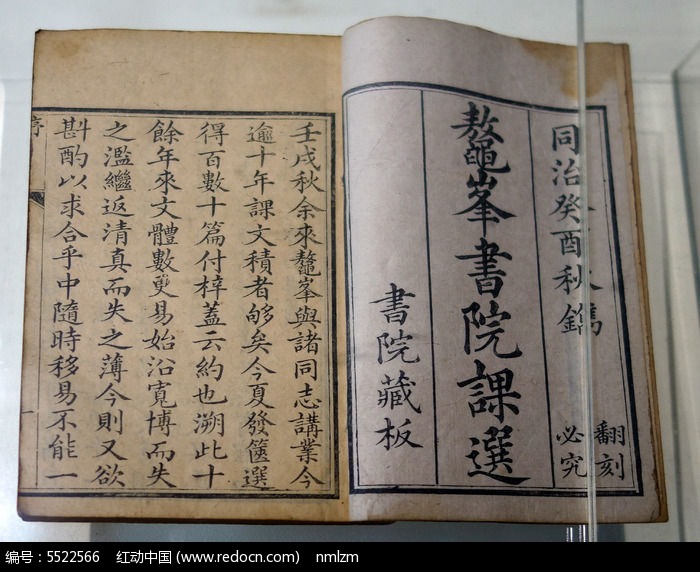 同治癸酉秋鐫
翻刻必究
鼇峯書院課選
書院藏板
壬戌秋余來鼇峯與諸同志講業今
逾十年課文積者夠矣今夏發篋選
得百數十篇付梓蓋云約也溯此十
餘年來文體數㪅易始沿寬博而失
之濫繼返清真而失之薄今則又欲
斟酌以求合乎中隨時移易不能一
序
编号：5522566 红动中国 (www.redocn.com) nmlzm